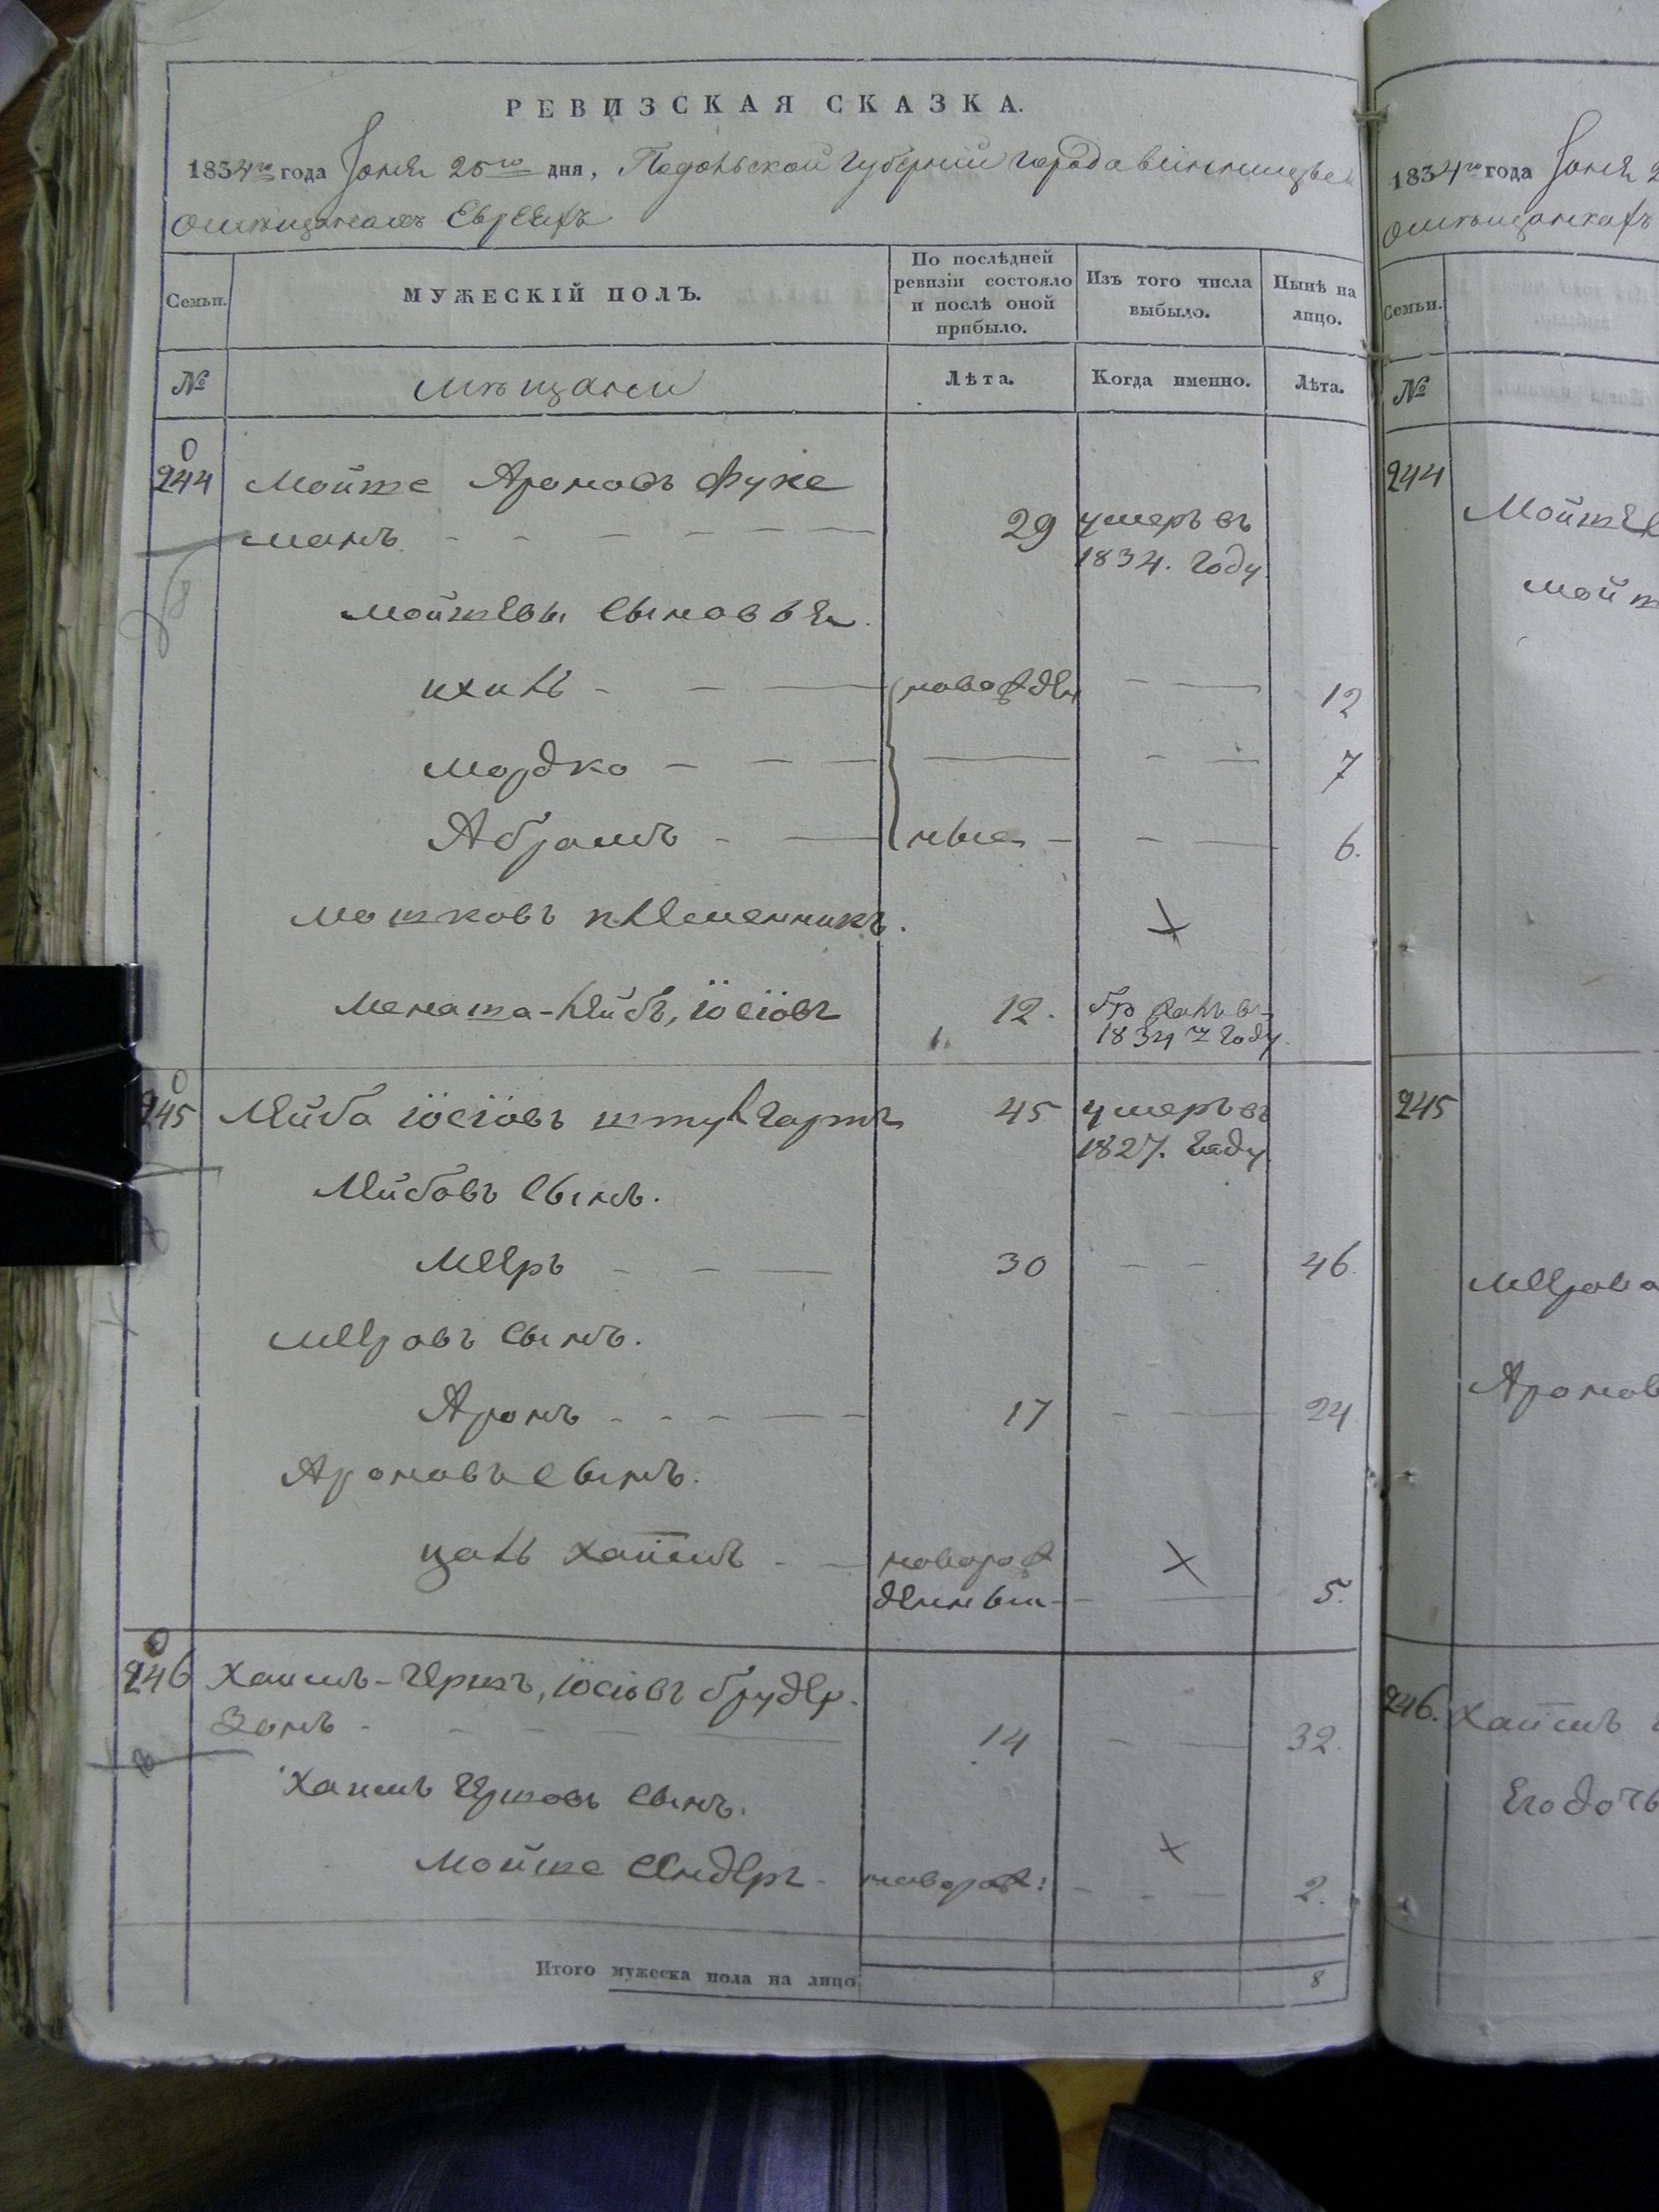 РЕВИЗСКАЯ СКАЗКА.
1834го года Іюня 25го дня, Подольской Губерніи города Винницы
о мѣщанахъ Евреяхъ
Семьи.
МУЖЕСКІЙ ПОЛЪ.
По послѣдней ревизіи состояло и послѣ оной прибыло.
Изъ того числа выбыло.
Нынѣ на лицо.
№
мѣщани
Лѣта.
Когда именно.
Лѣта.
0
244 Мойше Ароновъ Фукс
манъ 29 умеръ въ
1834. году
Мойшевы сыновья.
ихиль новорожден 12
Мордко 7
Абрамъ ные 6.
Мошковъ племенникъ.
Менаша-Лейбъ, іосіовъ 12. въ
1834 году.
0
245 Лейба іосіовъ штулгартъ 45 умеръ въ
1827. году
Лейбовъ сынъ.
Мееръ 30 46.
Мееровъ сынъ.
Аронъ 17 24
Ароновъ сынъ.
цаль хаимъ новорож
денный 5.
0
246 Хаимъ-Гершъ, іосіовъ брудер-
зонъ 14 32.
Хаимъ Гершовъ сынъ.
Мойше сендеръ новорож: 2.
Итого мужеска пола на лицо 8
1834го года Іюня 2
о мѣщанкахъ
Семьи.
№
244
Мойше
мойш
245
Меерова
Аронов
246. Хаимъ
Его дочь